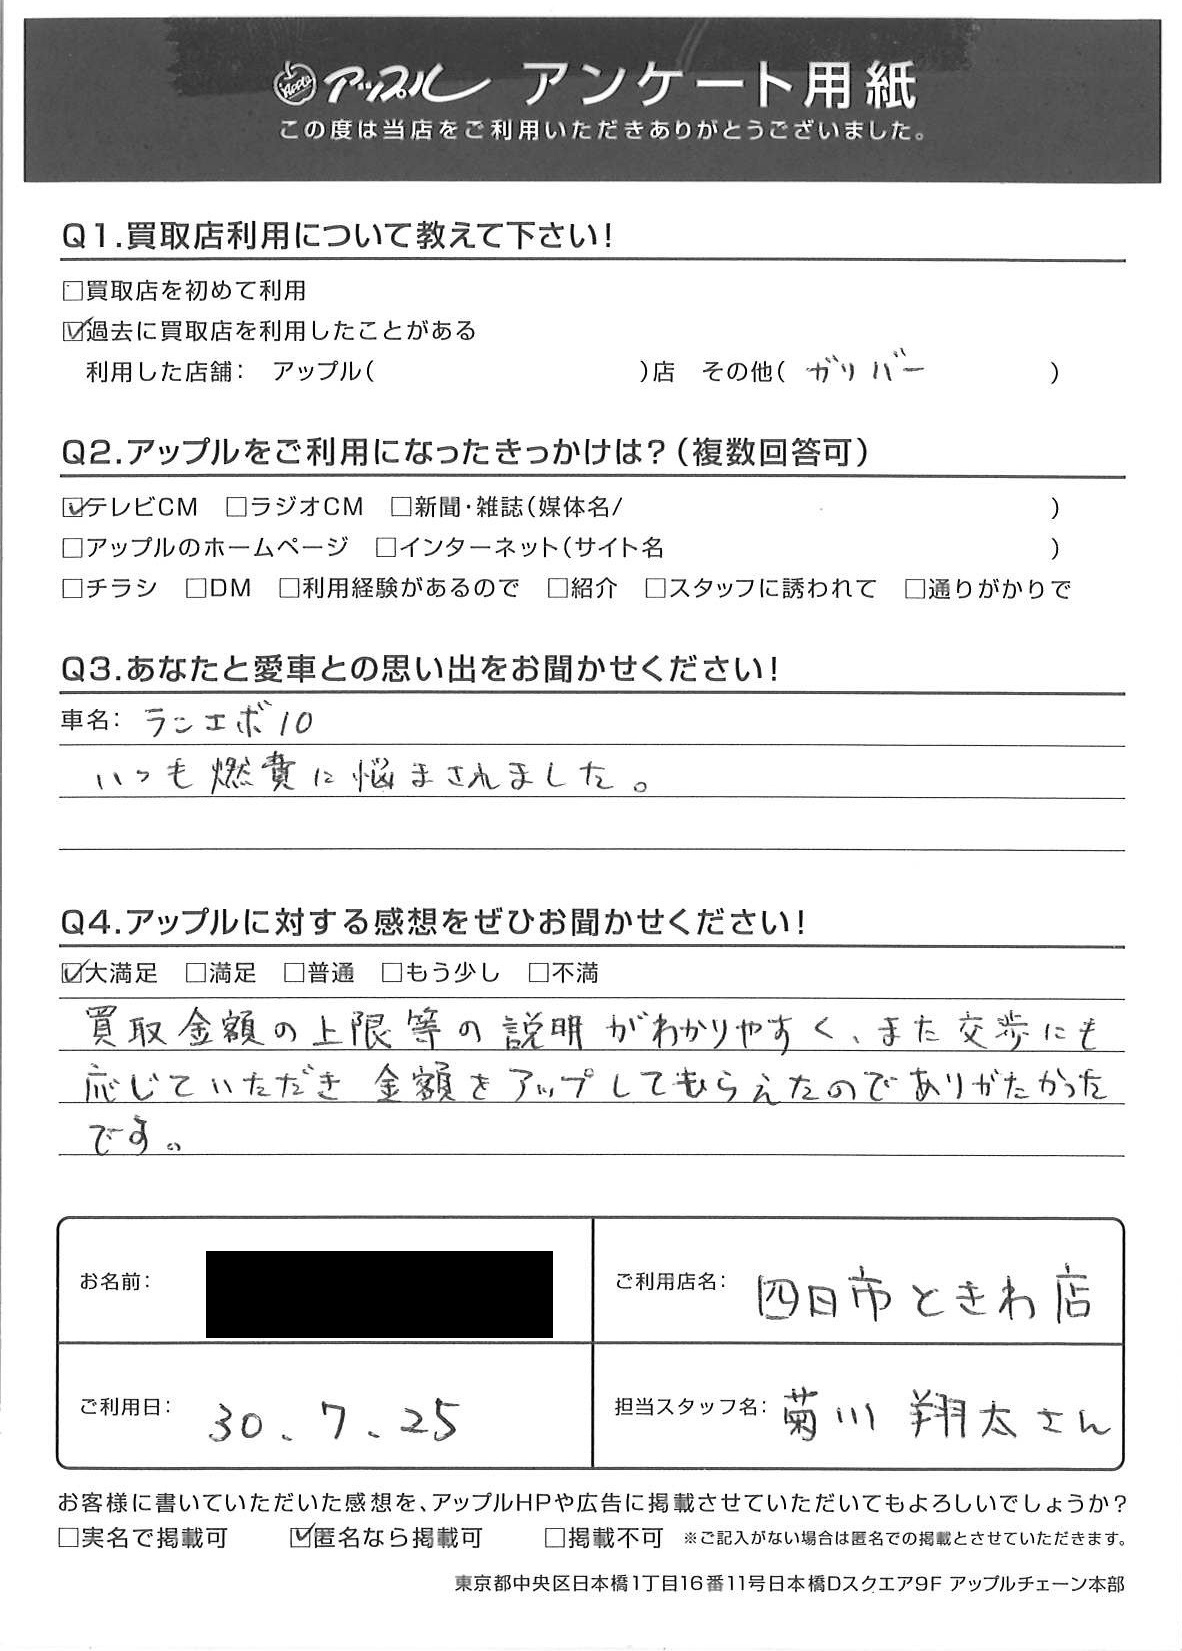 Apple アップル アンケート用紙
この度は当店をご利用いただきありがとうございました。
Q1.買取店利用について教えて下さい!
□買取店を初めて利用
☑過去に買取店を利用したことがある
利用した店舗: アップル( )店 その他( ガリバー )
Q2.アップルをご利用になったきっかけは?(複数回答可)
☑テレビCM □ラジオCM □新聞・雑誌(媒体名/ )
□アップルのホームページ □インターネット(サイト名 )
□チラシ □DM □利用経験があるので □紹介 □スタッフに誘われて □通りがかりで
Q3.あなたと愛車との思い出をお聞かせください!
車名: ランエボ10
いつも燃費に悩まされました。
Q4.アップルに対する感想をぜひお聞かせください!
☑大満足 □満足 □普通 □もう少し □不満
買取金額の上限等の説明がわかりやすく、また交渉にも
応じていただき金額をアップしてもらえたのでありがたかった
です。
お名前:
ご利用店名: 四日市ときわ店
ご利用日: 30.7.25
担当スタッフ名: 菊川 翔太さん
お客様に書いていただいた感想を、アップルHPや広告に掲載させていただいてもよろしいでしょうか?
□実名で掲載可 ☑匿名なら掲載可 □掲載不可 ※ご記入がない場合は匿名での掲載とさせていただきます。
東京都中央区日本橋1丁目16番11号日本橋Dスクエア9F アップルチェーン本部